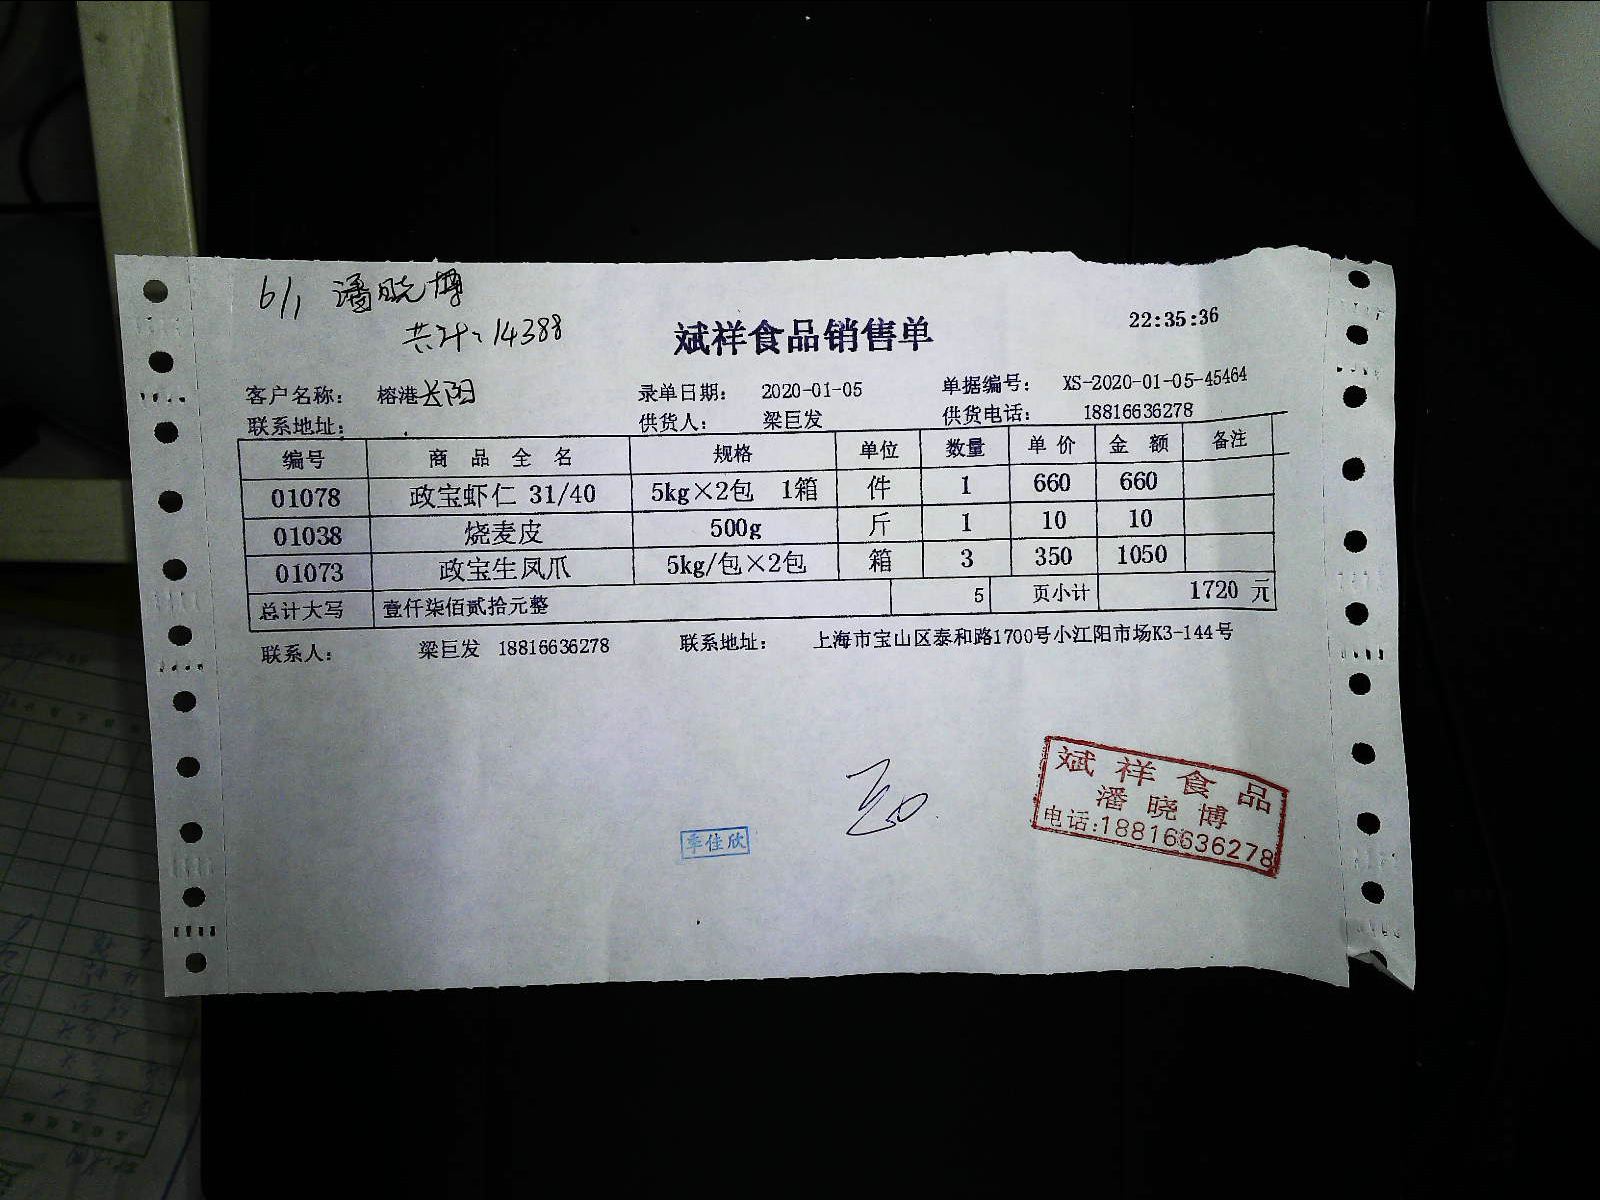 6/1 潘晓博
共计: 14388
斌祥食品销售单
22:35:36
客户名称: 榕港长阳 录单日期: 2020-01-05 单据编号: XS-2020-01-05-45464
联系地址: 供货人: 梁巨发 供货电话: 18816636278
编号 商品全名 规格 单位 数量 单价 金额 备注
01078 政宝虾仁 31/40 5kg×2包 1箱 件 1 660 660
01038 烧麦皮 500g 斤 1 10 10
01073 政宝生凤爪 5kg/包×2包 箱 3 350 1050
总计大写 壹仟柒佰贰拾元整 5 页小计 1720 元
联系人: 梁巨发 18816636278 联系地址: 上海市宝山区泰和路1700号小江阳市场K3-144号
斌祥食品
潘晓博
电话:18816636278
季佳欣